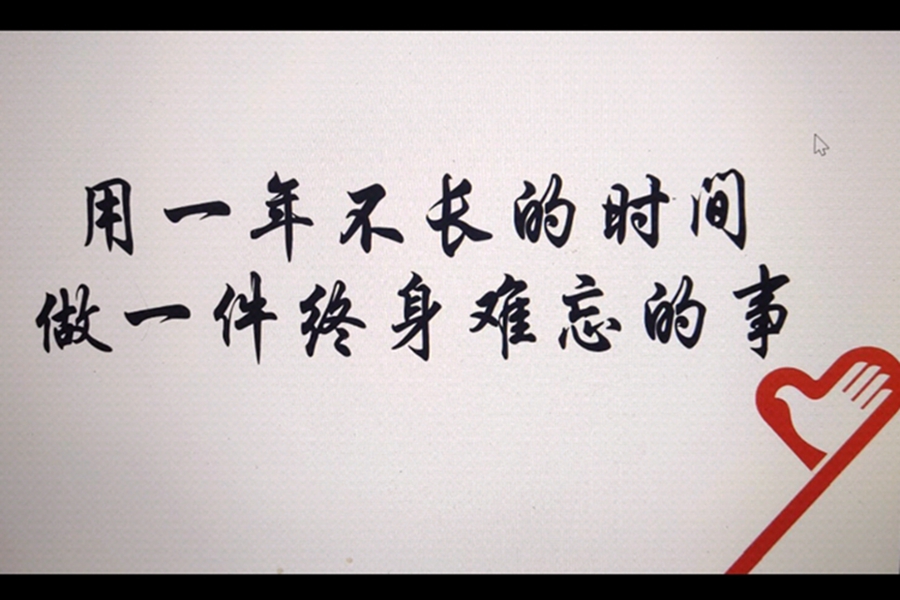 用一年不长的时间
做一件终身难忘的事